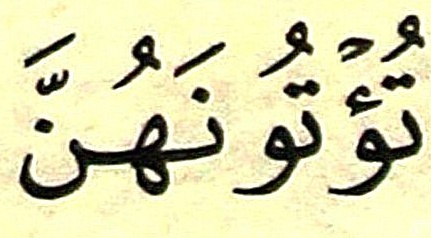 تُؤْتُونَهُنَّ